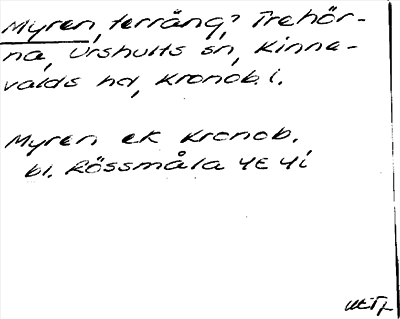 Myren, terräng? Trehör-
na, Urshults sn, Kinne-
valds hd, Kronob. l.
Myren ek Kronob.
bl. Rössmåla 4E 4i